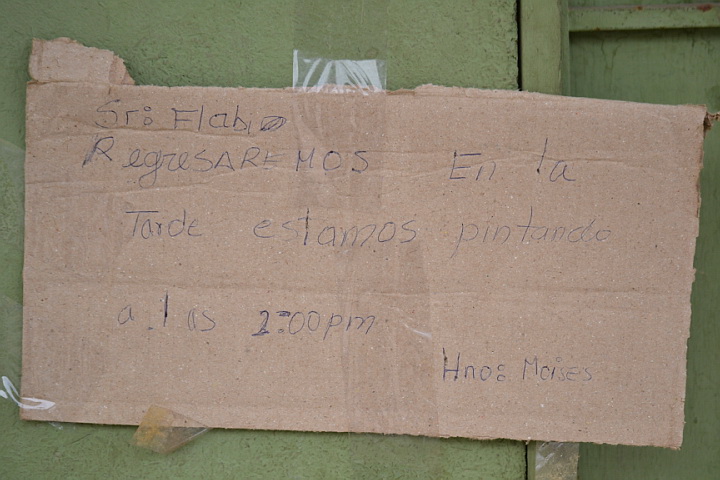 Sr: Flabio
RegresAREMOS En la
Tarde estamos pintando
a las 2:00pm
Hno: Moises